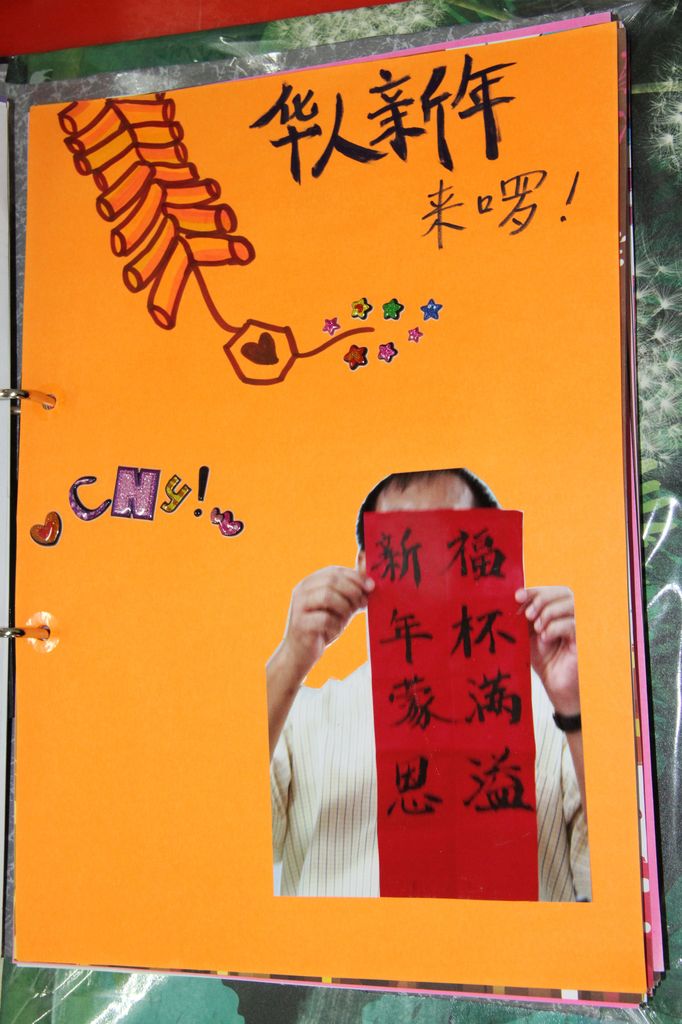 华人新年
来啰！
CNY!
新年蒙恩
福杯满溢